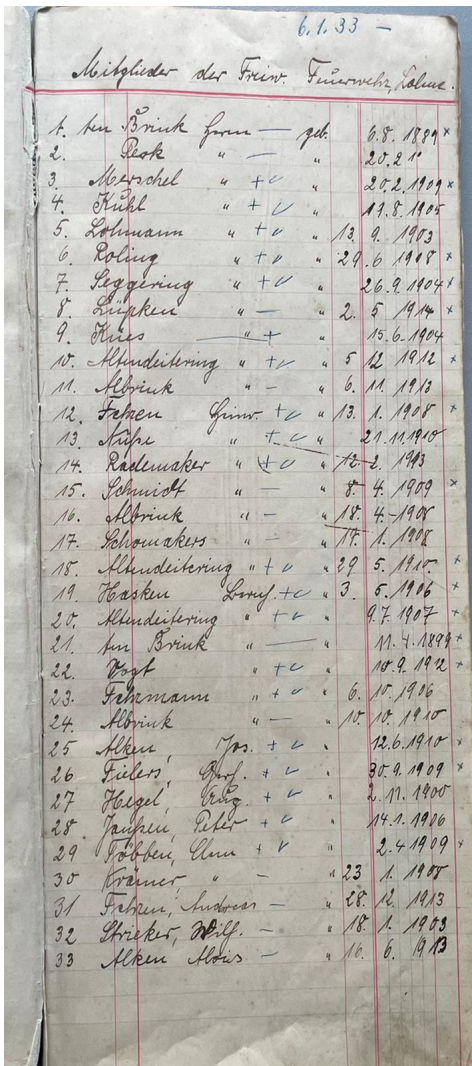 6.1.33 —
Mitglieder der Freiw. Feuerwehr, Lohne.
1. ten Brink Herm — geb. 6.8. 1889 x
2. Pesk " — " 20.2 1
3. Merschel " + ✓ " 20.2. 1909 x
4. Kuhl " + ✓ " 19.8. 1905
5. Lohmann " + ✓ " 13. 9. 1903
6. Roling " + ✓ " 29. 6 1908 x
7. Seggering " + ✓ " 26.9. 1904 x
8. Lüpken " — " 2. 5 1914 x
9. Kues — + " 15.6-1904
10. Altendeitering " + ✓ " 5 12 1912 x
11. Albrink " — " 6. 11. 1913
12. Fehren Heinr. + ✓ " 13. 1. 1908 x
13. Nüße " + ✓ " 21.11.1910
14. Rademaker " + ✓ " 12. 2. 1913
15. Schmidt " — " 8. 4. 1909 x
16. Albrink " — " 18. 4-1908
17. Schomakers " — " 17. 1. 1908
18. Altendeitering " + ✓ " 29 5. 1910. x
19. Hasken Bernh. + ✓ " 3. 5. 1906 x
20. Altendeitering " + ✓ " 9.7. 1907 x
21. ten Brink " — " 11.4.1899 x
22. Vogt " + ✓ " 10.9. 1912 x
23. Fehrmann " + ✓ " 6. 10. 1906
24. Albrink " — " 10. 10. 1910
25 Alken, Jos. + ✓ " 12.6.1910 x
26 Fielers, Gerh. + ✓ " 30.9. 1909 x
27 Hegel, Aug. + ✓ " 2. 11. 1900
28 Janßen, Peter + ✓ " 14.1. 1906
29 Többen, Clem + ✓ " 2.4 1909 x
30 Krämer, " — " 23 1. 1908
31 Fehren, Andreas — " 28. 12. 1913
32 Strieker, Wilh. — " 18. 1. 1903
33 Alken Alois — " 16. 6. 1913